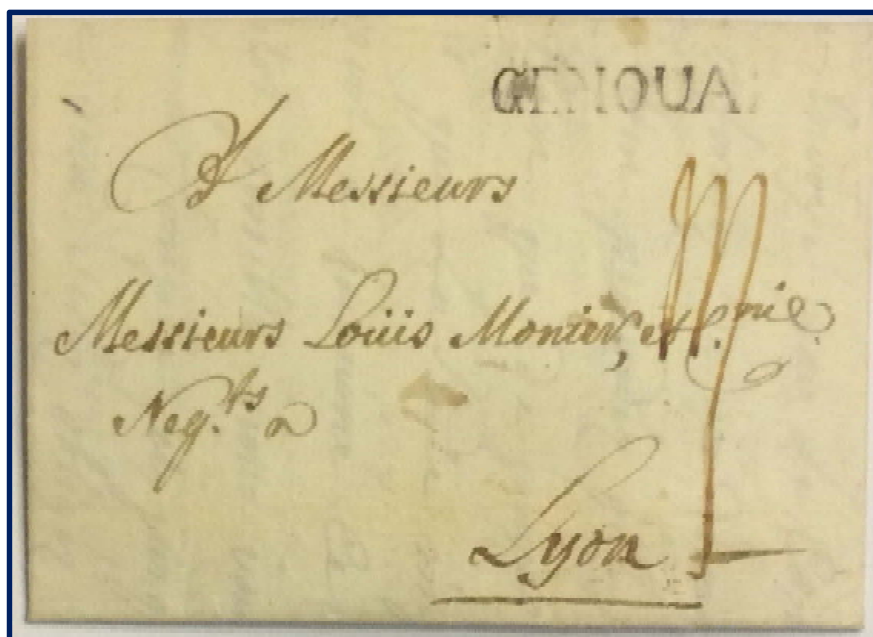 GENOUA
A Messieurs
Messieurs Loüis Monier, et C.nie
Neg.ts a
Lyon